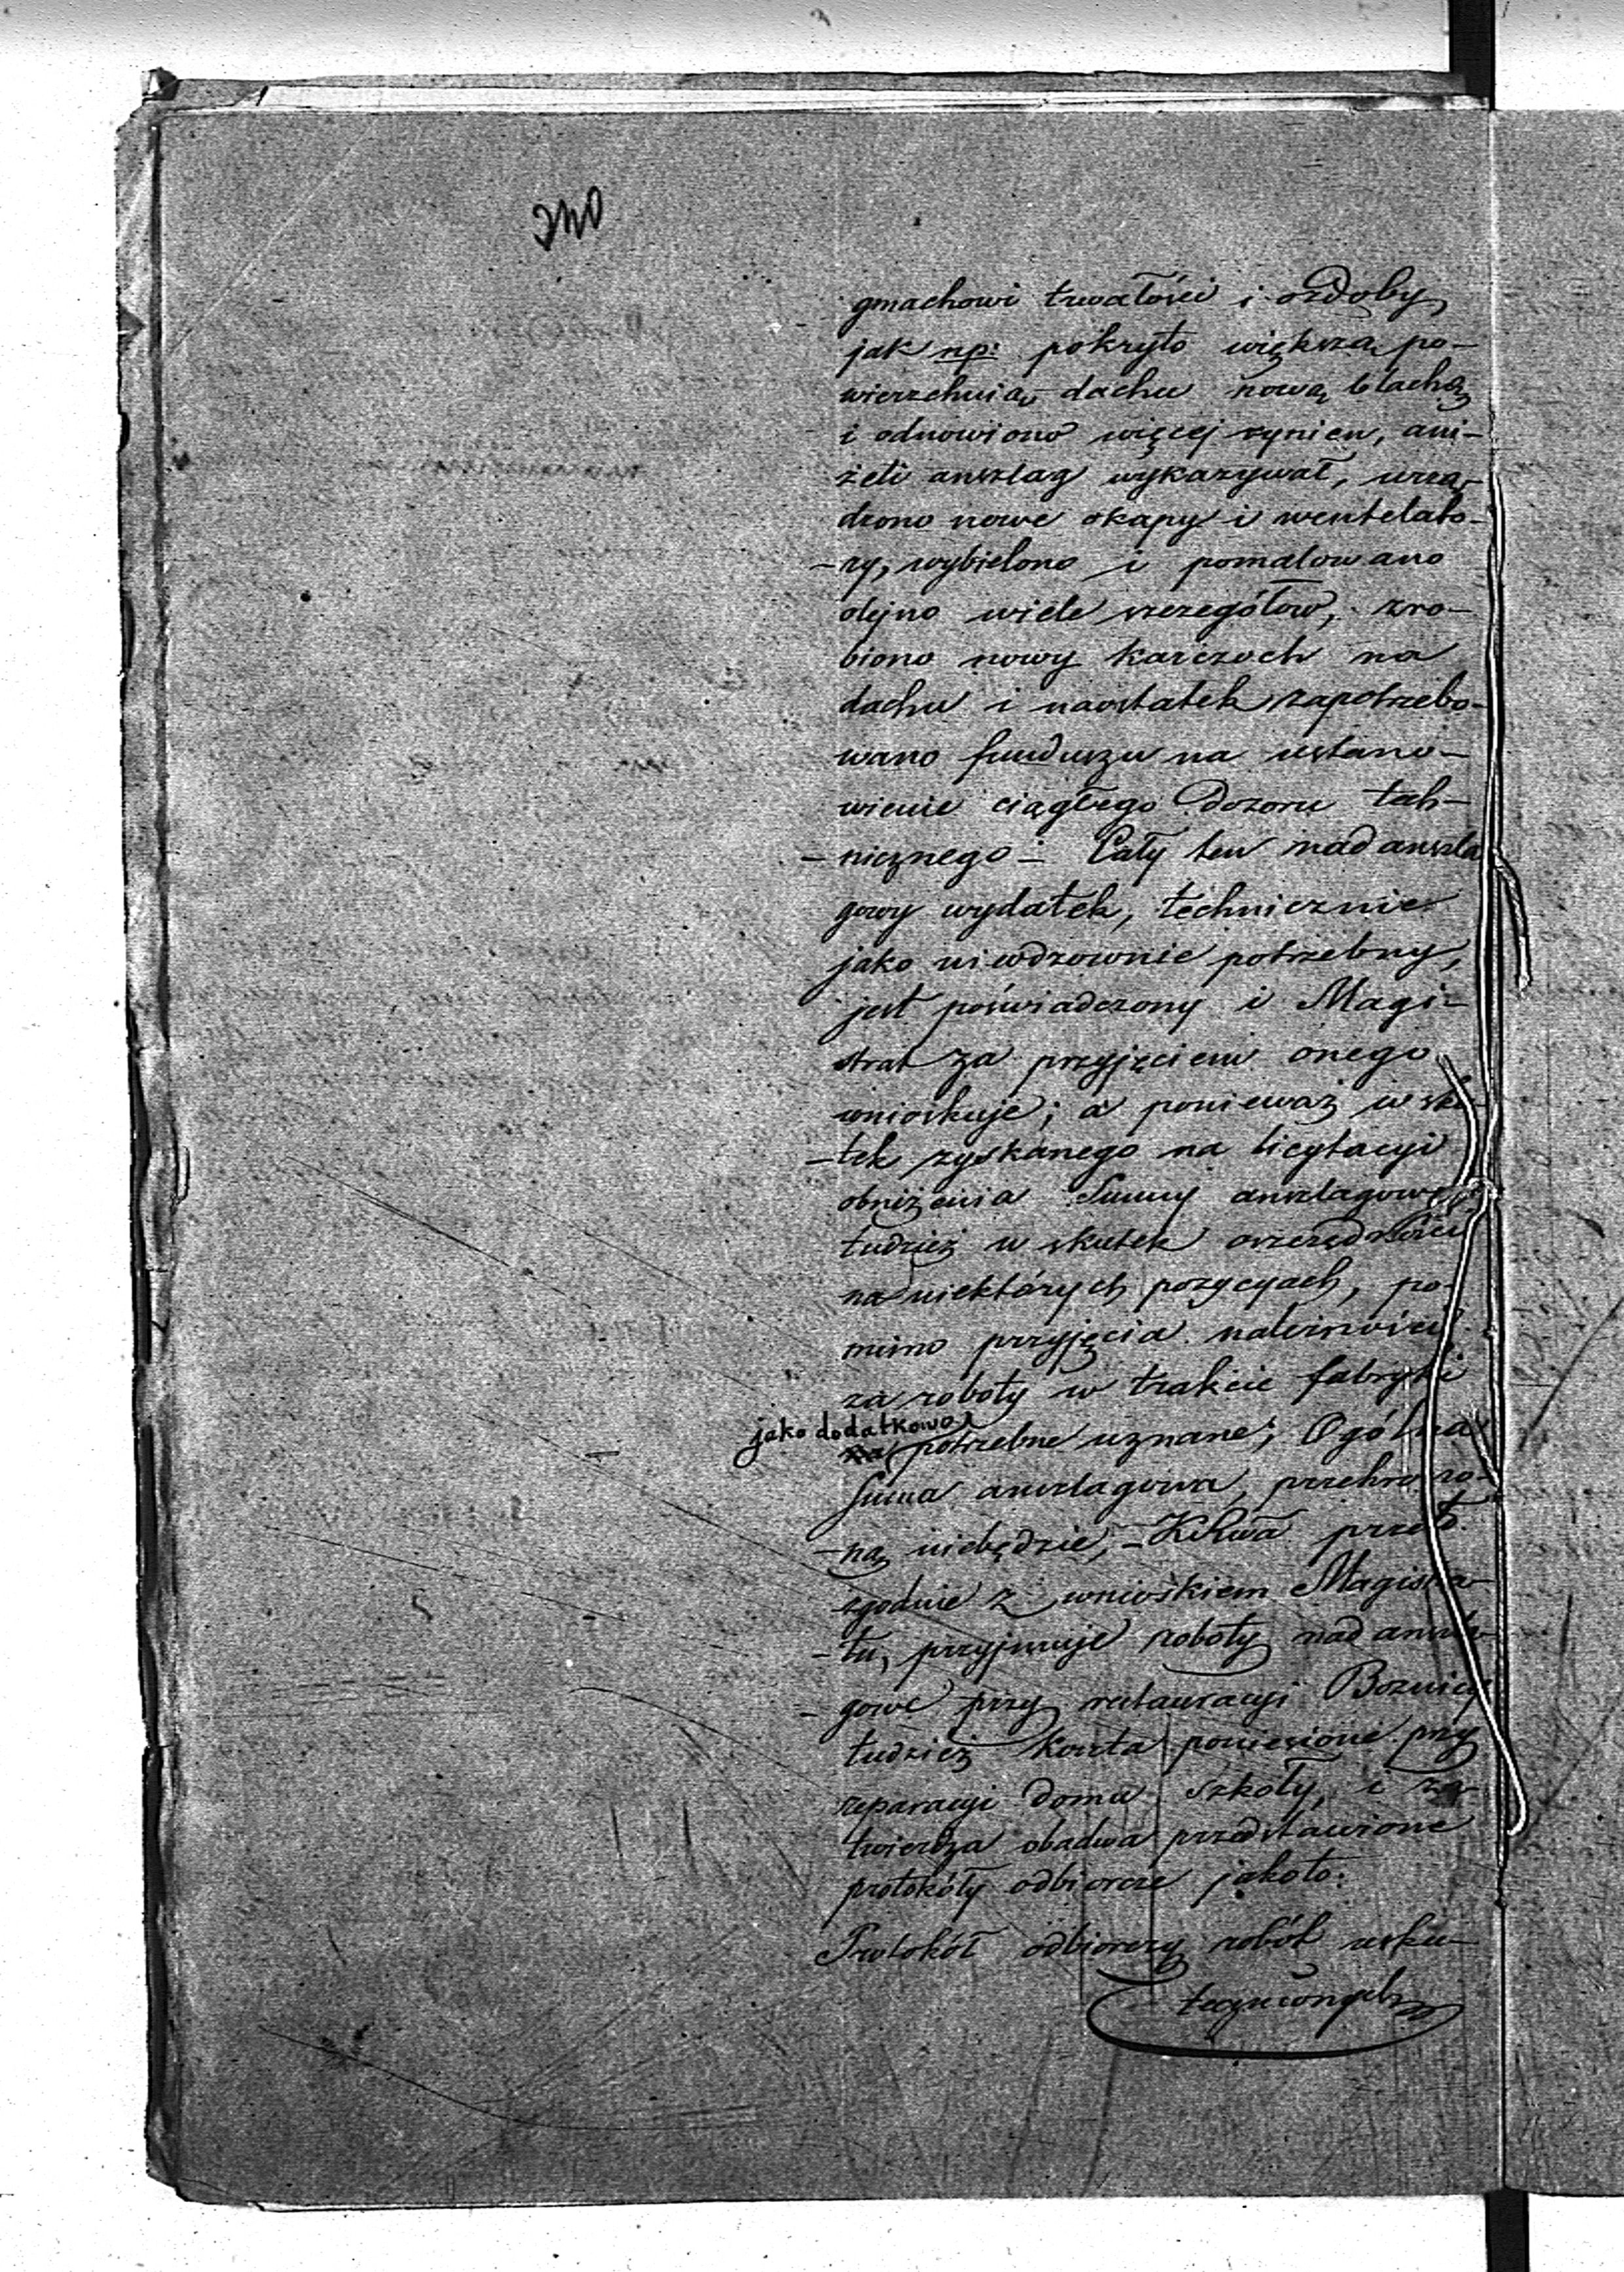 gmachowi trwałości i ozdoby,
jak np: pokryto większą po-
wierzchnią dachu nową blachą
i odnowiono więcej rynien, ani-
żeli anszlag wykazywał, urzą-
dzono nowe okapy i wentelato-
-ry, wybielono i pomalowano
olejno wiele szczegółow, zro-
biono nowy karczoch na
dachu i naostatek zapotrzebo-
wano funduszu na ustano-
wienie ciągłego Dozoru tech-
-nicznego - Cały ten nadanszla
gowy wydatek, technicznie
jako niewdzownie potrzebny,
jest poświadczony i Magi-
strat za przyjęciem onego
wnioskuje; a ponieważ w sku-
-tek zyskanego na licytacyi
obniżenia Summy anszlagowej
tudzież w skutek oszczędności
na niektórych pozycyach, po-
mimo przyjęcia należności
za roboty w trakcie fabryki
jako dodatkowo
za potrzebne uznane; Ogólna
Suma anszlagowa, przekroczo-
-ną niebędzie, - przeto
zgodnie z wnioskiem Magistra-
-tu, przyjmuje roboty nadanszla-
- gowe przy restauracyi Boznicy
tudzież koszta poniesione przy
reparacyi domu Szkoły, i za-
twierdza obadwa przedstawione
protokóły odbiorcze jakoto:
Protokół odbiorczy robót usku-
tecznionych